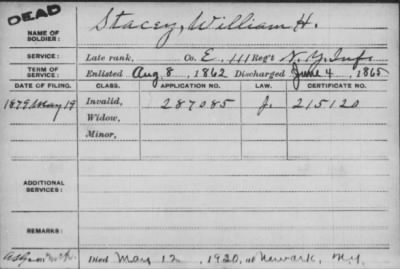 DEAD
NAME OF SOLDIER: Stacey, William H.
SERVICE: Late rank, Co. E, 111 Reg't N.Y. Inf.
TERM OF SERVICE: Enlisted Aug. 8, 1862 Discharged June 4, 1865
DATE OF FILING. CLASS. APPLICATION NO. LAW. CERTIFICATE NO.
1879 May 19 Invalid, 287085 J. 215120
Widow,
Minor,
ADDITIONAL SERVICES:
REMARKS:
Died May 12, 1920, at Newark, N.Y.